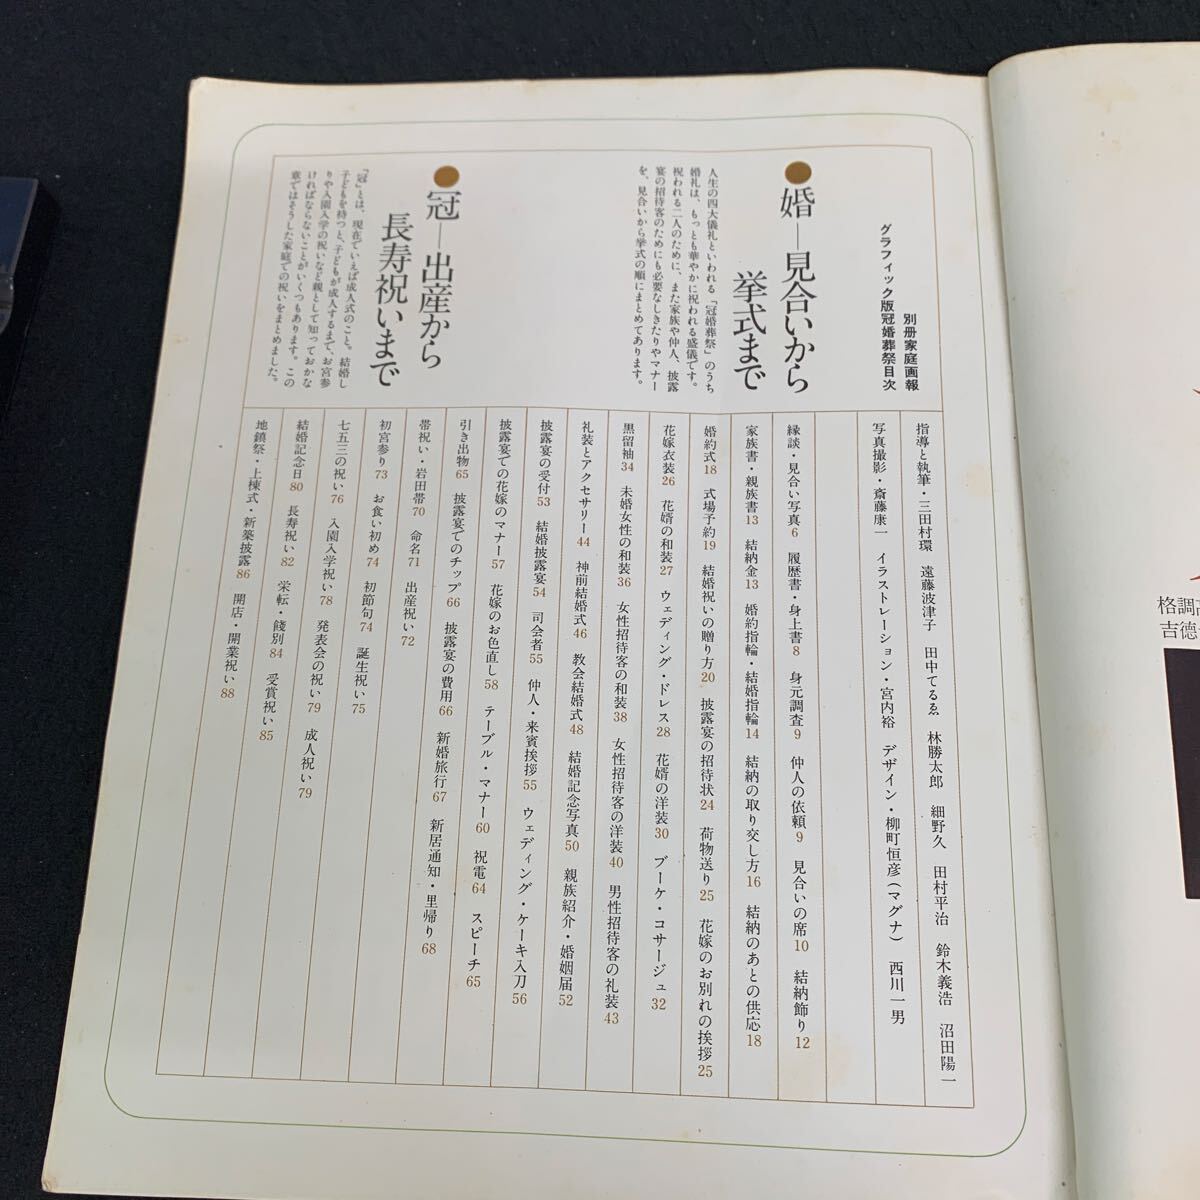 別册家庭画報
グラフィック版冠婚葬祭目次
●婚―見合いから
挙式まで
人生の四大儀礼といわれる「冠婚葬祭」のうち
婚礼は、もっとも華やかに祝われる盛儀です。
祝われる二人のために、また家族や仲人、披露
宴の招待客のためにも必要なしきたりやマナー
を、見合いから挙式の順にまとめてあります。
●冠―出産から
長寿祝いまで
「冠」とは、現在でいえば成人式のこと。結婚し
子どもを持つと、子どもが成人するまで、お宮参
りや入園入学の祝いなど親として知っておかな
ければならないことがいくつもあります。この
章ではそうした家庭での祝いをまとめました。
指導と執筆・三田村環 遠藤波津子 田中てるゑ 林勝太郎 細野久 田村平治 鈴木義浩 沼田陽一
写真撮影・斎藤康一 イラストレーション・宮内裕 デザイン・柳町恒彦(マグナ) 西川一男
縁談・見合い写真6 履歴書・身上書8 身元調査9 仲人の依頼9 見合いの席10 結納飾り12
家族書・親族書13 結納金13 婚約指輪・結婚指輪14 結納の取り交し方16 結納のあとの供応18
婚約式18 式場予約19 結婚祝いの贈り方20 披露宴の招待状24 荷物送り25 花嫁のお別れの挨拶25
花嫁衣装26 花婿の和装27 ウェディング・ドレス28 花婿の洋装30 ブーケ・コサージュ32
黒留袖34 未婚女性の和装36 女性招待客の和装38 女性招待客の洋装40 男性招待客の礼装43
礼装とアクセサリー44 神前結婚式46 教会結婚式48 結婚記念写真50 親族紹介・婚姻届52
披露宴の受付53 結婚披露宴54 司会者55 仲人・来賓挨拶55 ウェディング・ケーキ入刀56
披露宴での花嫁のマナー57 花嫁のお色直し58 テーブル・マナー60 祝電64 スピーチ65
引き出物65 披露宴でのチップ66 披露宴の費用66 新婚旅行67 新居通知・里帰り68
帯祝い・岩田帯70 命名71 出産祝い72
初宮参り73 お食い初め74 初節句74 誕生祝い75
七五三の祝い76 入園入学祝い78 発表会の祝い79 成人祝い79
結婚記念日80 長寿祝い82 栄転・餞別84 受賞祝い85
地鎮祭・上棟式・新築披露86 開店・開業祝い88
格調
吉徳